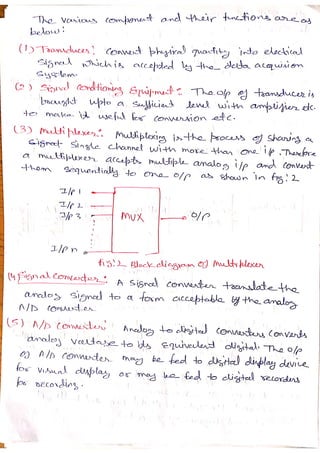 The various component and their functions are as
below:
(1) Transducers: Convert physical quantity into electrical
signal which is accepted by the data acquision
system.
(2) Signal Conditioning Equipment: The o/p of transducer is
brought upto a sufficient level with amplifier etc.
to make it useful for conversion etc.
(3) Multiplexer: Multiplexing is the process of sharing a
signal single channel with more than one i/p. Therefore
a multiplexer accepts multiple analog i/p and convert
them sequentially to one o/p as shown in fig: 2
I/P 1
I/P 2
I/P 3
MUX
O/P
I/P n
fig: 2 Block diagram of Multiplexer
(4) Signal Converter: A signal converter translate the
analog signal to a form acceptable by the analog
A/D converter.
(5) A/D Converter: Analog to digital converters converts
analog voltage to its equivalent digital. The o/p
of A/D converter may be fed to digital display device
for visual display or may be fed to digital recorders
for recording.